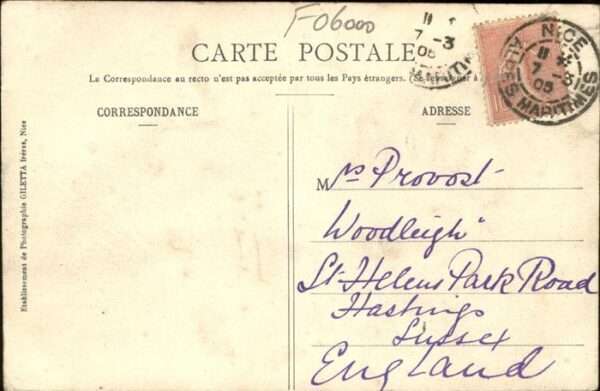 F06000
CARTE POSTALE
Le Correspondance au recto n'est pas acceptée par tous les Pays étrangers. (Se renseigner à
CORRESPONDANCE
ADRESSE
NICE
11
7 - 3
05
ALPES MARITIMES
11
7 - 3
05
Mrs Provost
"Woodleigh"
St Helens Park Road
Hastings
Sussex
England
Etablissement de Photographie GILETTA frères, Nice